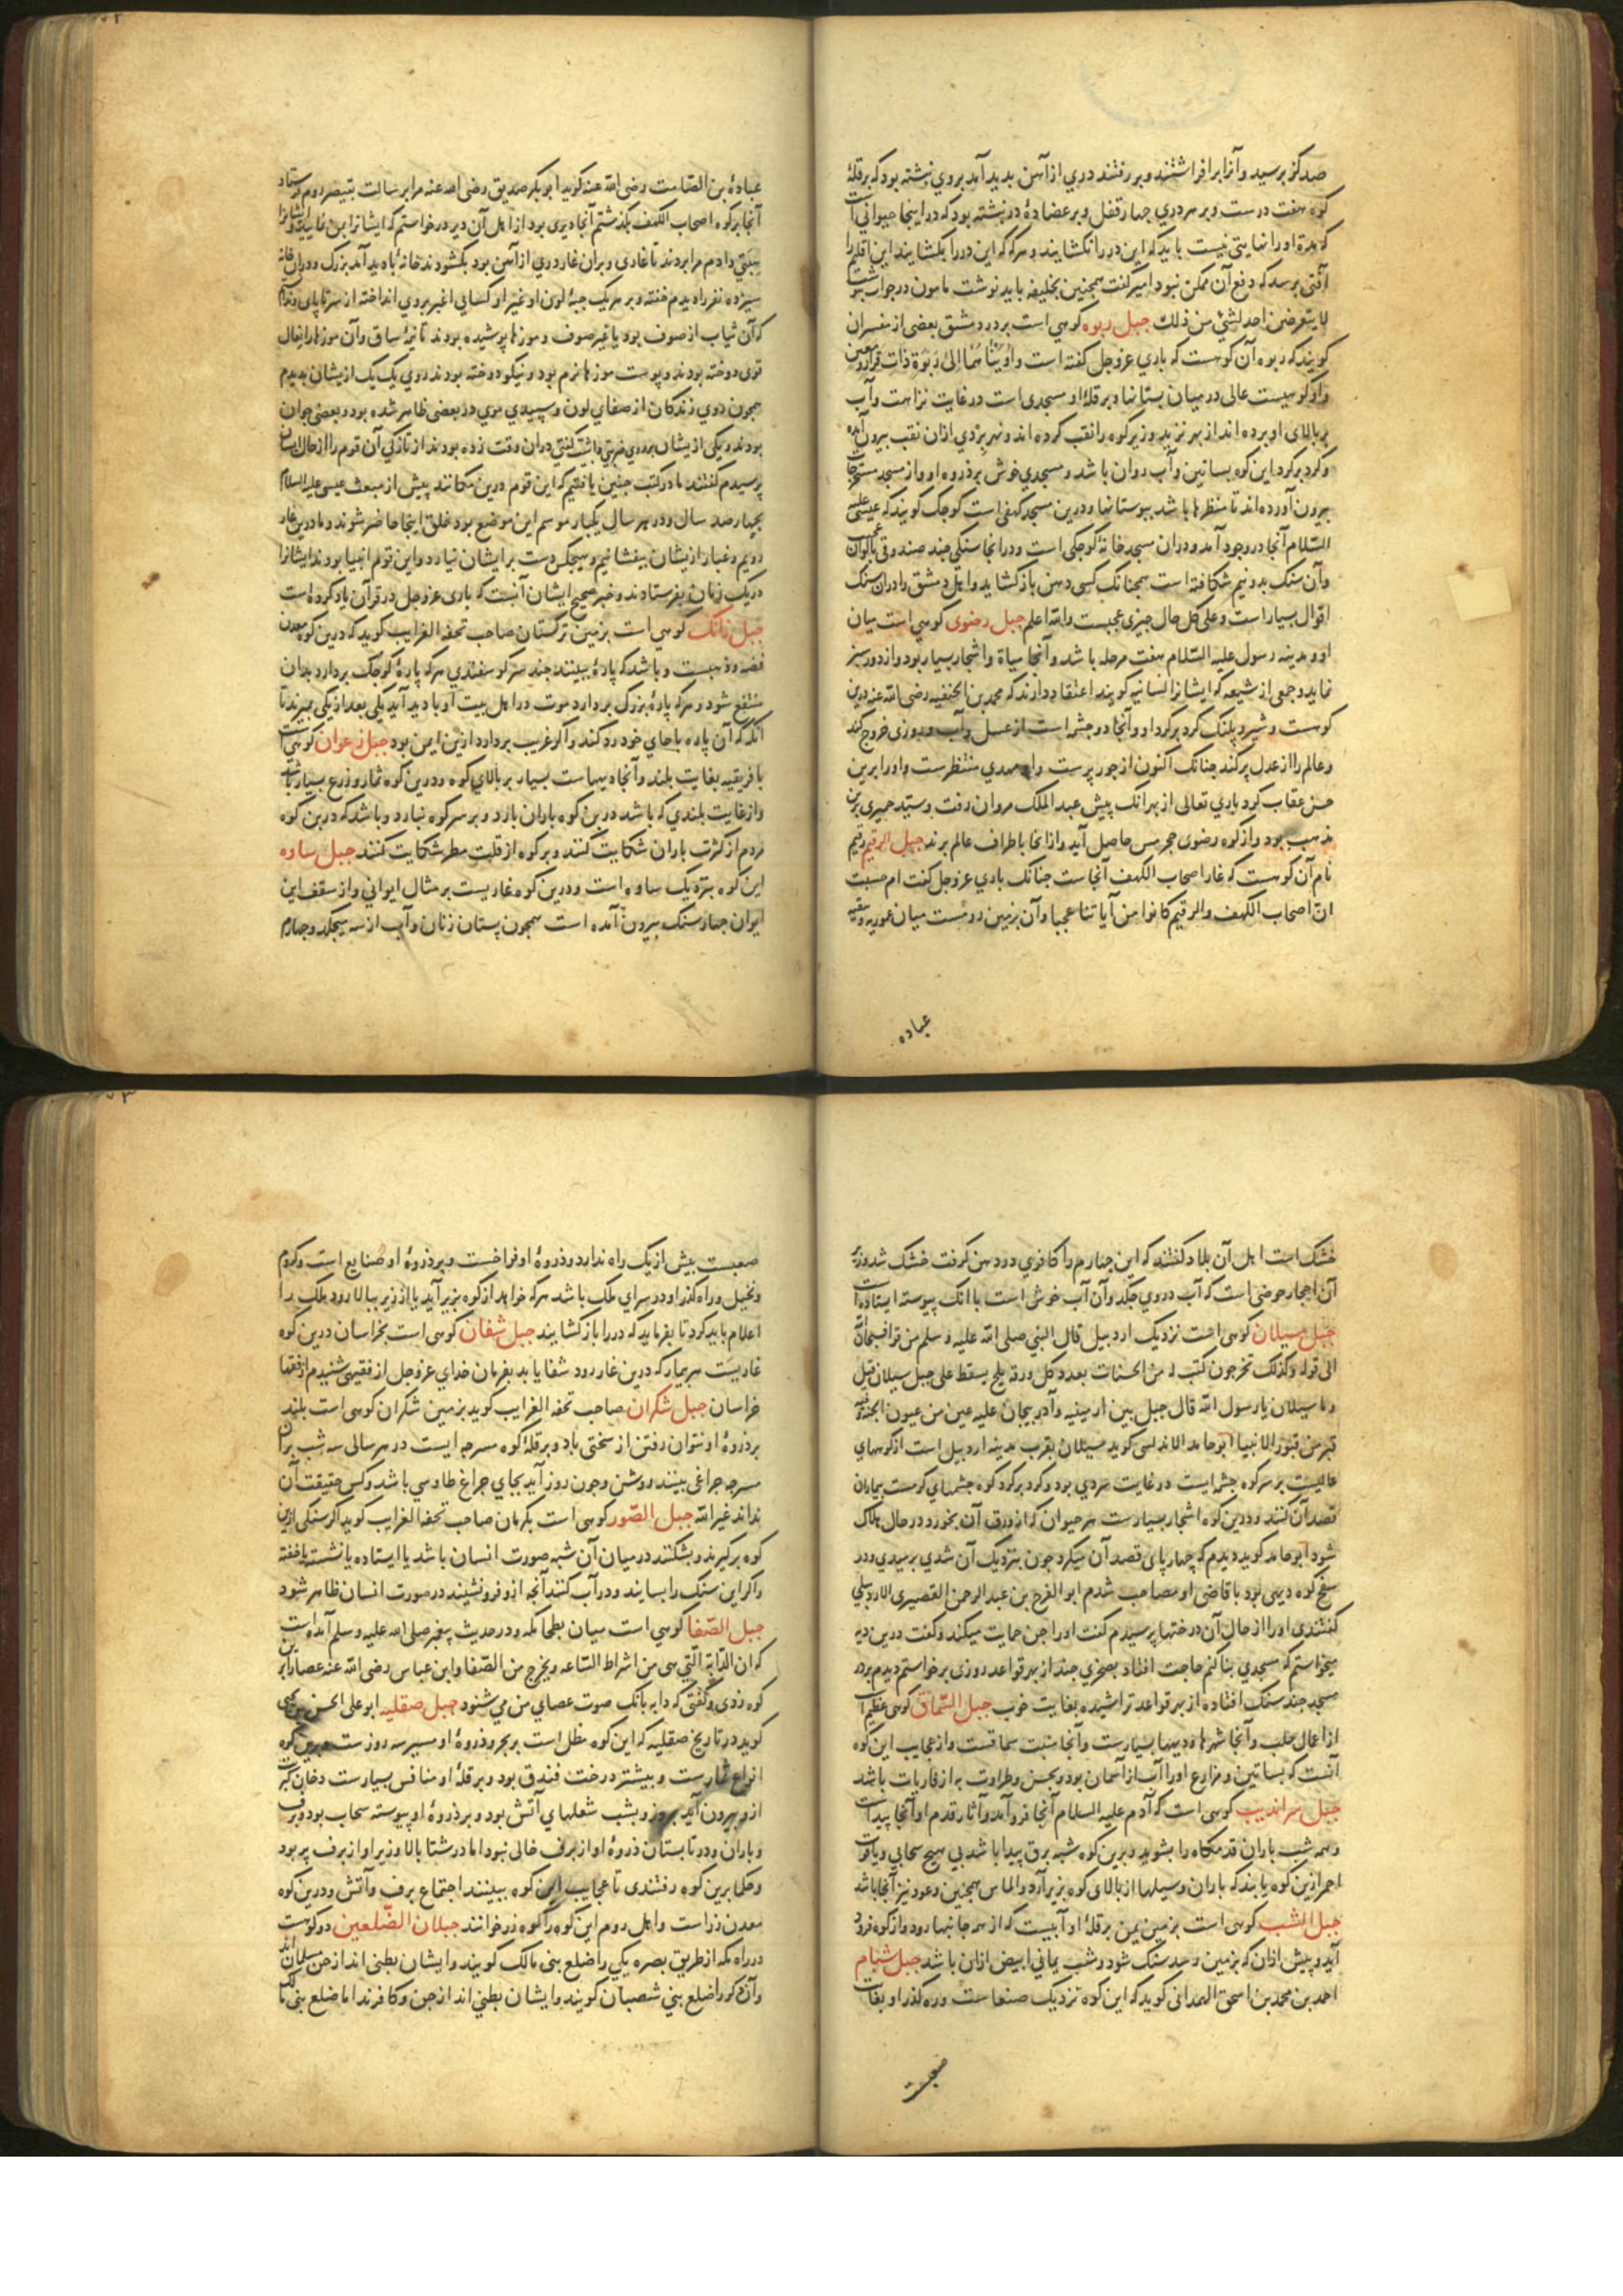 صد کز برسید و آنرا برافراشتند و بر رفتند دری از آهن بدید آمد بروی نبشته بود که بر قلهٔ
کوه هفت درست و بر هر دری چهار قفل و بر عضادهٔ در نبشته بود که در اینجا حیوانی است
که مدة او را نهایتی نیست باید که این در را نکشایند و هر که که این در را بکشایند این اقلیم را
آفتی برسد که دفع آن ممکن نبود امیر گفت همچنین بخلیفه باید نوشت مامون در جواب نبشت
لا یتعرضن احد لشیٔ من ذلک جبل ربوه کوهی است بر در دمشق بعضی از مفسران
کویند که ربوه آن کوهست که باری عزوجل کفته است و آویناهما الی ربوة ذات قرار و معین
و او کوهیست عالی در میان بستانها و بر قلهٔ او مسجدی است در غایت نزاهت و آب
بر بالای او برده اند از نهر یزید و زیر کوه را نقب کرده اند و نهر بردی ازان نقب بیرون آمده
و کرد بر کرد این کوه بساتین و آب روان باشد و مسجدی خوش بر ذروه او و از مسجد
بیرون آورده اند تا منظرها باشد ببوستانها و درین مسجد کهفی است کوچک کویند که عیسی علیه
السلام آنجا در وجود آمد و دران مسجد خانهٔ کوچکی است و در آنجا سنکی چند صندوقی
و آن سنک بدو نیم شکافته است همچنانک کسی دهن باز کشاید و اهل دمشق را دران سنک
اقوال بسیار است و علی کل حال چیزی عجبست والله اعلم جبل رضوی کوهی است میان
او و مدینه رسول علیه السلام هفت مرحله باشد و آنجا میاة و اشجار بسیار بود و از دور سبز
نماید و جمعی از شیعه که ایشانرا کیسانیه کویند اعتقاد دارند که محمد بن الحنفیه رضی الله عنه درین
کوهست و شیر و پلنک کرد بر کرد او و آنجا دو چشمه است از عسل و آب و روزی خروج کند
و عالم را از عدل پر کند چنانک اکنون از جور پرست و او مهدی منتظرست و او را برین
حبس عقاب کرد باری تعالی از بهر انک پیش عبد الملک مروان رفت و سید حمیری برین
مذهب بود و از کوه رضوی حجر مسن حاصل آید و از آنجا باطراف عالم برند جبل الرقیم رقیم
نام آن کوهست که غار اصحاب الکهف آنجاست چنانک باری عزوجل کفت ام حسبت
ان اصحاب الکهف والرقیم کانوا من آیاتنا عجبا و آن بزمین رومست میان عموریه و نیقیه
عباده
عبادهٔ بن الصامت رضی الله عنه کوید ابو بکر صدیق رضی الله عنه مرا برسالت بقیصر روم فرستاد
آنجا بر کوه اصحاب الکهف بکذشتم آنجا دیری بود از اهل آن دیر درخواستم که ایشانرا بمن نمایید
بتکی دادم مرا بردند تا غاری و بران غار دری از آهن بود بکشودند خانهٔ بدید آمد بزرک و دران خانه
سیزده نفر را دیدم خفته و بر هر یک جبهٔ و کسایی اغبر بروی انداخته از سر تا پای
که آن ثیاب از صوف بود یا غیر صوف و موزها پوشیده بودند تا نیمهٔ ساق و آن موزها را نعال
توی دوخته بودند و پوست موزها نرم بود و نیکو دوخته بودند روی یک یک ازیشان بدیدم
همچون روی زندکان از صفای لون و سپیدی موی در بعضی ظاهر شده بود و بعضی جوان
بودند و یکی ازیشان بر روی ضربتی داشت کفتی دران وقت زده بودند از تازکی آن قوم را از حال ایشان
پرسیدم کفتند ما در کتب چنین یافتیم که این قوم درین مکانند پیش از مبعث عیسی علیه السلام
بچهارصد سال و در هر سال یکبار موسم این موضع بود خلق اینجا حاضر شوند و ما درین غار
رویم و غبار ازیشان بیفشانیم و هیچکس دست بر ایشان نیارد و این قوم انبیا بودند ایشانرا
در یک زمان بفرستادند و خبر صحیح ایشان آنست که باری عزوجل در قرآن یاد کرده است
جبل زانک کوهی است بزمین ترکستان صاحب تحفه الغرایب کوید که درین کوه معدن
فضه و ذهبست و باشد که پارهٔ ببینند چند سر کوسفندی هر که پارهٔ کوچک بردارد بدان
منتفع شود و هر که پارهٔ بزرک بردارد موت در اهل بیت او بادید آید یکی بعد از یکی بمیرند تا
آنکه که آن پاره با جای خود رد کند و اکر غریب بردارد ازین ایمن بود جبل زغوان کوهی است
بافریقیه بغایت بلند و آنجا دیهاست بسیار بر بالای کوه و درین کوه ثمار و زرع بسیار باشد
و از غایت بلندی که باشد درین کوه باران بارد و بر سر کوه نبارد و باشد که درین کوه
مردم از کثرت باران شکایت کنند و بر کوه از قلت مطر شکایت کنند جبل ساوه
این کوه بنزدیک ساوه است و درین کوه غاریست بر مثال ایوانی و از سقف این
ایوان چهار سنک بیرون آمده است همچون پستان زنان و آب از سه میچکد و چهارم
خشک است اهل آن بلاد کفتند که این چهارم را کافری در دهن کرفت خشک شد و زیر
آن احجار حوضی است که آب دروی چکد و آن آب خوش است با آنک پیوسته ایستاده است
جبل سبلان کوهی است نزدیک اردبیل قال النبی صلی الله علیه و سلم من قرأ فسبحان الله
الی قوله و کذلک تخرجون کتب له من الحسنات بعدد کل ورقة ثلج یسقط علی جبل سبلان قیل
و ما سبلان یا رسول الله قال جبل بین ارمینیه و آذربیجان علیه عین من عیون الجنة و فیه
قبر من قبور الانبیا ابو حامد الاندلسی کوید سبلان بقرب مدینه اردبیل است از کوههای
عالیست بر سر کوه چشمه ایست در غایت سردی بود و کرد بر کرد کوه چشمهای کرمست بیماران
قصد آن کنند و درین کوه اشجار بسیارست هر حیوان که از ورق آن بخورد در حال هلاک
شود ابو حامد کوید دیدم که چهار پای قصد آن میکرد چون بنزدیک آن شدی برمیدی و در
سفح کوه دیهی بود با قاضی او مصاحب شدم ابو الفرج بن عبد الرحمن القصیری الاردبیلی
کفتندی او را از حال آن درختها پرسیدم کفت او را جن حمایت میکند و کفت درین دیه
میخواستم که مسجدی بنا کنم حاجت افتاد بصخری چند از بهر قواعد روزی برخواستم دیدم بر در
مسجد چند سنک افتاده از بهر قواعد تراشیده بغایت خوب جبل السماق کوهی عظیم است
از اعمال حلب و آنجا شهرها و دیهها بسیارست و آنجا منبت سماقست و از عجایب این کوه
آنست که بساتین و مزارع او را آب از آسمان بود و بحسن و طراوت به از فاریات باشد
جبل سراندیب کوهی است که آدم علیه السلام آنجا فرو آمد و آثار قدم او آنجا پیداست
و همه شب باران قدمکاه را بشوید و برین کوه شبه برق پیدا باشد بی هیچ سحابی و یاقوت
احمر ازین کوه یابند که باران و سیلها از بالای کوه بزیر آرد و الماس همچنین و عود نیز آنجا باشد
جبل الشب کوهی است بزمین یمن بر قلهٔ او آبیست که از همه جانبها رود و از کوه فرود
آید و پیش ازان که بزمین رسد سنک شود و شب یمانی ابیض ازان باشد جبل شبام
احمد بن محمد بن اسحق الهمدانی کوید که این کوه نزدیک صنعاست و ره کذر او بغایت
صعبست
صعبست بیش از یک راه ندارد و ذروهٔ او فراخست و بر ذروهٔ او ضیاع است و کروم
و نخیل و راه کذر او در سرای ملک باشد هر که خواهد از کوه بزیر آید یا از زیر ببالا رود ملک را
اعلام باید کرد تا بفرماید که در را باز کشایند جبل شفان کوهی است بخراسان درین کوه
غاریست هر بیمار که درین غار رود شفا یابد بفرمان خدای عزوجل از فقیهی شنیدم از فقها
خراسان جبل شکران صاحب تحفه الغرایب کوید بزمین شکران کوهی است بلند
بر ذروهٔ او نتوان رفتن از سختی باد و بر قلهٔ کوه مسرجه ایست در هر سالی سه شب بران
مسرجه چراغی بینند روشن و چون روز آید بجای چراغ طاوسی باشد و کس حقیقت آن
نداند غیر الله جبل الصور کوهی است بکرمان صاحب تحفه الغرایب کوید اکر سنکی ازین
کوه برکیرند و بشکنند در میان آن شبه صورت انسان باشد یا ایستاده یا نشسته یا خفته
و اکر این سنک را بسایند و در آب کنند آنچه ازو فرو نشیند در صورت انسان ظاهر شود
جبل الصفا کوهی است میان بطحا مکه و در حدیث پیغمبر صلی الله علیه و سلم آمده است
که ان الدابة التی هی من اشراط الساعه و یخرج من الصفا و ابن عباس رضی الله عنه عصا را برین
کوه زدی و کفتی که دابه بانک صوت عصای من می شنود جبل صقلیه ابو علی الحسن بن یحیی
کوید در تاریخ صقلیه که این کوه مطل است بر بحر و ذروهٔ او مسیر سه روزست و برین کوه
انواع ثمارست و بیشتر درخت فندق بود و بر قلهٔ او منافس بسیارست دخان کبریت
ازو بیرون آید بروز و بشب شعلهای آتش بود و بر ذروهٔ او پیوسته سحاب بود و برف
و باران و در تابستان ذروهٔ او از برف خالی نبود اما در شتا بالا و زیر او از برف پر بود
و حکما برین کوه رفتندی تا عجایب این کوه ببینند اجتماع برف و آتش و درین کوه
معدن زر است و اهل روم این کوه را کوه زر خوانند جبلان الضلعین دو کوهست
در راه مکه از طریق بصره یکی را ضلع بنی مالک کویند و ایشان بطنی اند از جن مسلمان اند
و آن دکر را ضلع بنی شصبان کویند و ایشان بطنی اند از جن و کافرند اما ضلع بنی مالک